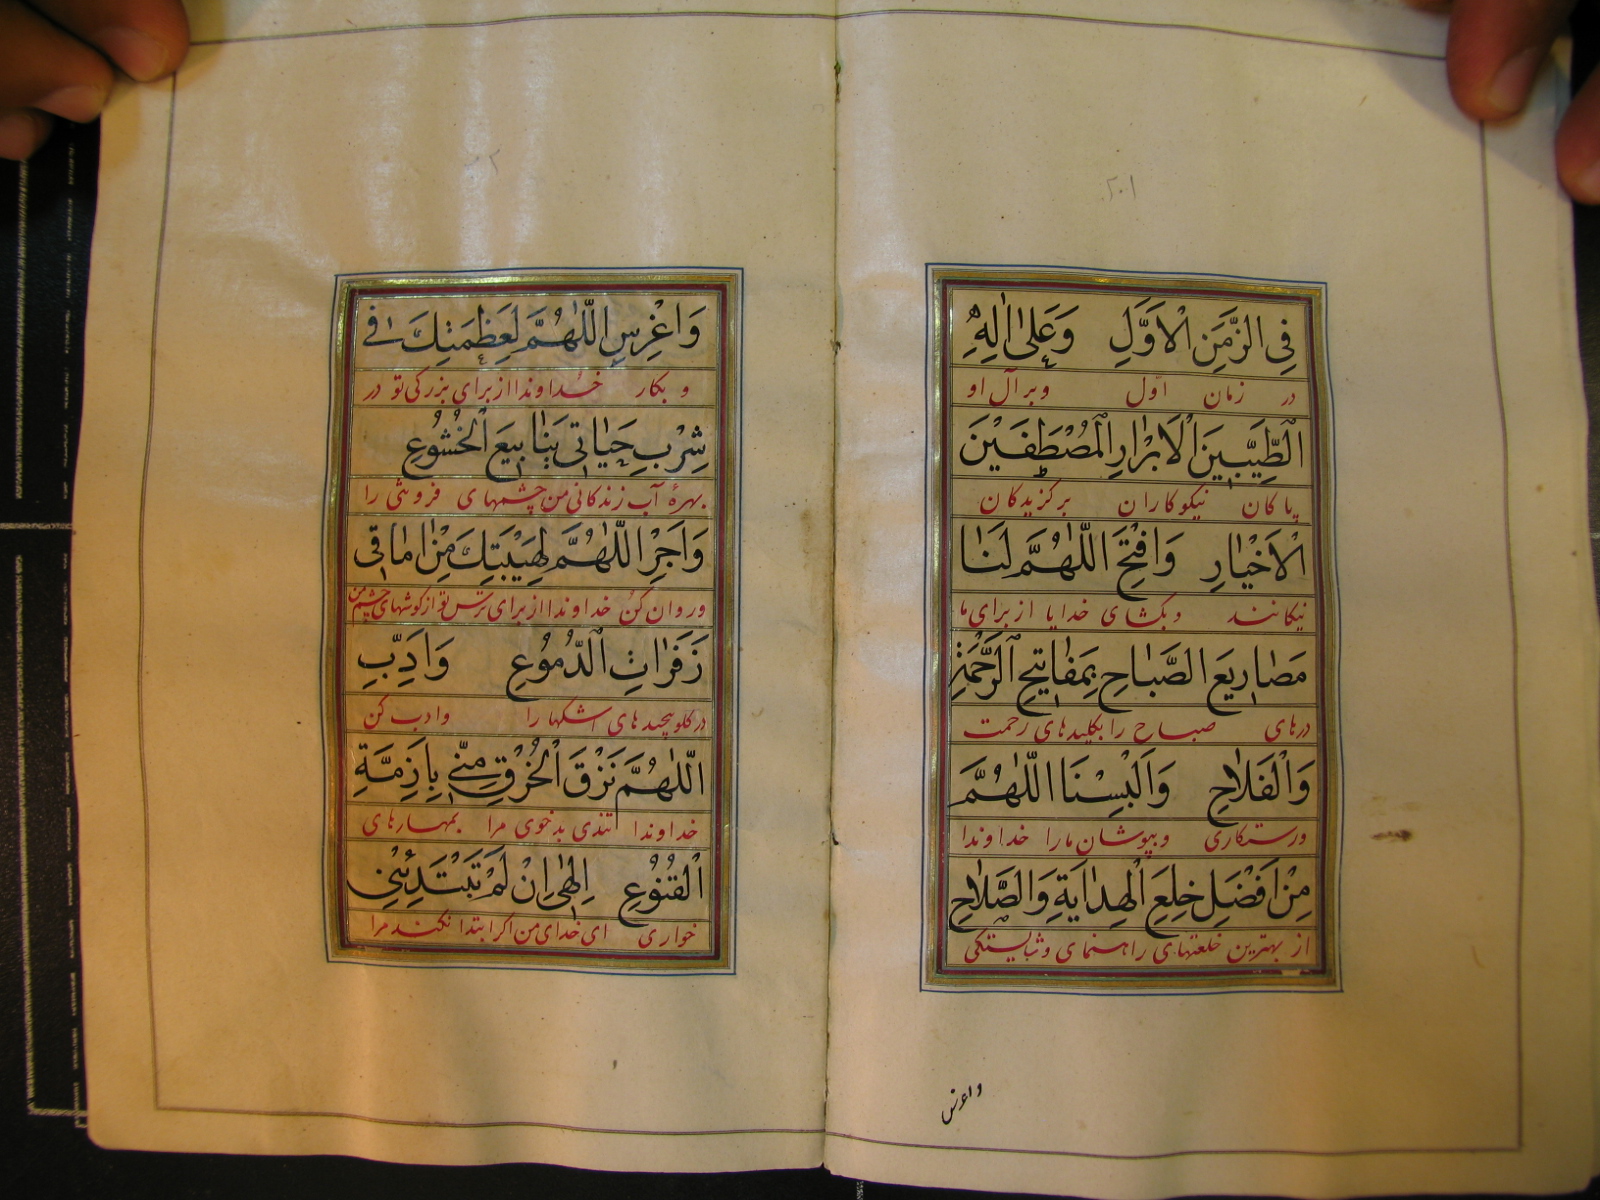 ۲۰۱
فِی الزَّمَنِ الْاَوَّلِ وَعَلٰی اٰلِهِ
در زمان اوّل وبر آل او
الطَّیِّبینَ الْاَبْرٰارِ الْمُصْطَفَیْنَ
پاکان نیکوکاران برگزیدگان
الْاَخْیٰارِ وَافْتَحِ اللّٰهُمَّ لَنٰا
نیکانند وبگشای خدایا از برای ما
مَصٰاریعَ الصَّبٰاحِ بِمَفٰاتیحِ الرَّحْمَةِ
درهای صباح را بکلیدهای رحمت
وَالْفَلٰاحِ وَاَلْبِسْنَا اللّٰهُمَّ
ورستگاری وبپوشان مارا خداوندا
مِنْ اَفْضَلِ خِلَعِ الْهِدٰایَةِ وَالصَّلٰاحِ
از بهترین خلعتهای راهنمای وشایستگی
واغرس
وَاغْرِسِ اللّٰهُمَّ لِعَظَمَتِكَ فی
و بکار خداوندا از برای بزرگی تو در
شِرْبِ حَیٰاتی یَنٰابیعَ الْخُشُوعِ
بهرهٔ آب زندکانی من چشمهای فروتنی را
وَاَجْرِ اللّٰهُمَّ لِهَیْبَتِكَ مِنْ اٰمٰاقی
وروان کن خداوندا از برای ترس تو از گوشهای چشم من
زَفَرٰاتِ الدُّمُوعِ وَاَدِّبِ
در کلو پیچیدهای اشکها را وادب کن
اللّٰهُمَّ نَزْقَ الْخُرْقِ مِنّی بِاَزِمَّةِ
خداوندا تندی بدخوی مرا بمهارهای
الْقُنُوعِ اِلٰهی اِنْ لَمْ تَبْتَدِئْنِی
خواری ای خدای من اگر ابتدا نکند مرا